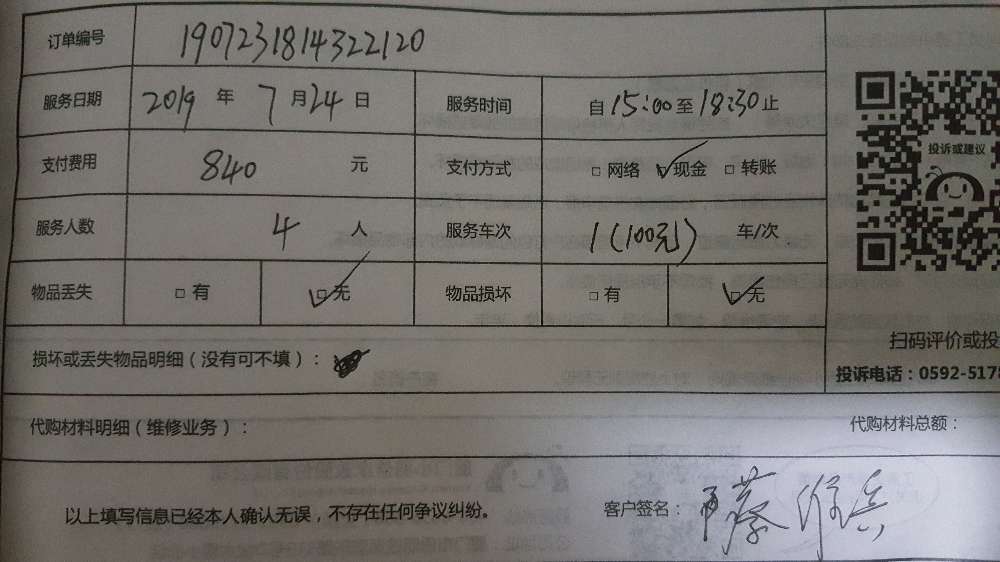 订单编号 1907231814322120
服务日期 2019 年 7 月 24 日 服务时间 自 15:00 至 18:30 止
投诉或建议
支付费用 840 元 支付方式 □ 网络 ☑ 现金 □ 转账
服务人数 4 人 服务车次 1(100元) 车/次
物品丢失 □ 有 ☑ 无 物品损坏 □ 有 ☑ 无
扫码评价或投
损坏或丢失物品明细（没有可不填）：
投诉电话：0592-5175
代购材料明细（维修业务）： 代购材料总额：
以上填写信息已经本人确认无误，不存在任何争议纠纷。 客户签名：